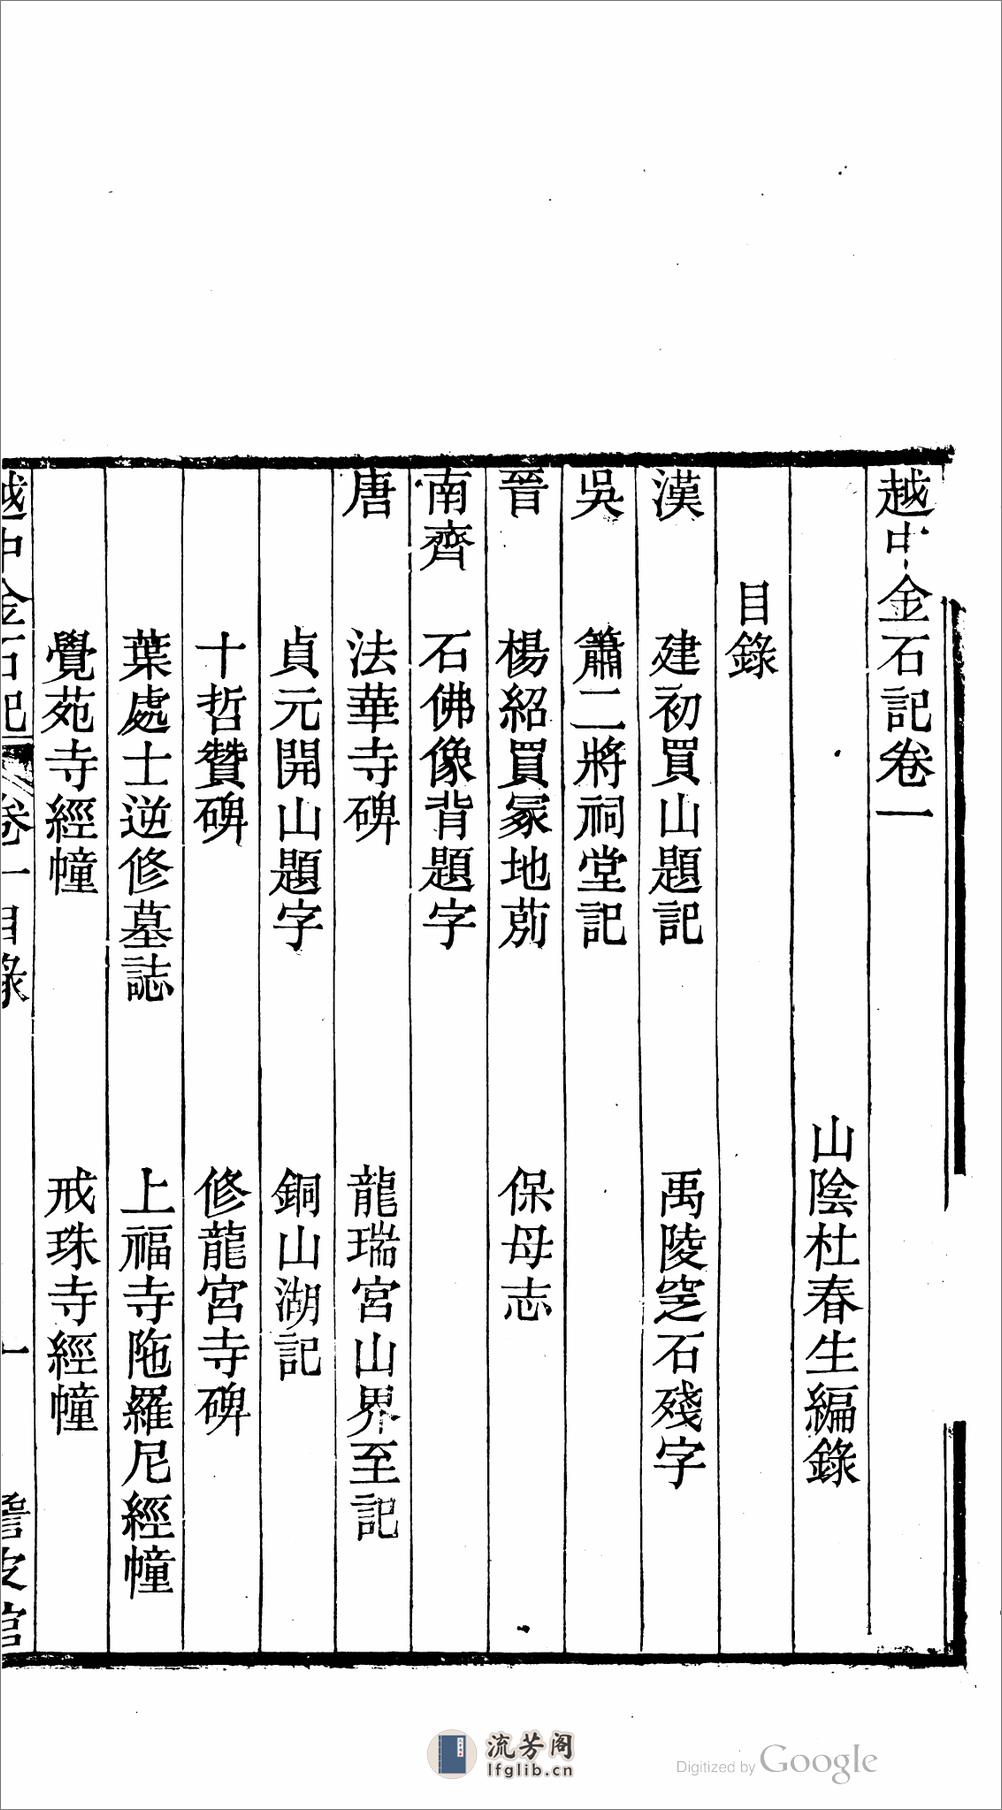 越中金石記卷一
山陰杜春生編錄
目錄
漢 建初買山題記 禹陵窆石殘字
吳 簫二將祠堂記
晉 楊紹買冢地莂 保母志
南齊 石佛像背題字
唐 法華寺碑 龍瑞宮山界至記
貞元開山題字 銅山湖記
十哲贊碑 修龍宮寺碑
葉處士逆修墓誌 上福寺陁羅尼經幢
覺苑寺經幢 戒珠寺經幢
越中金石記 卷一目錄 一
流芳阁
lfglib.cn
Digitized by Google